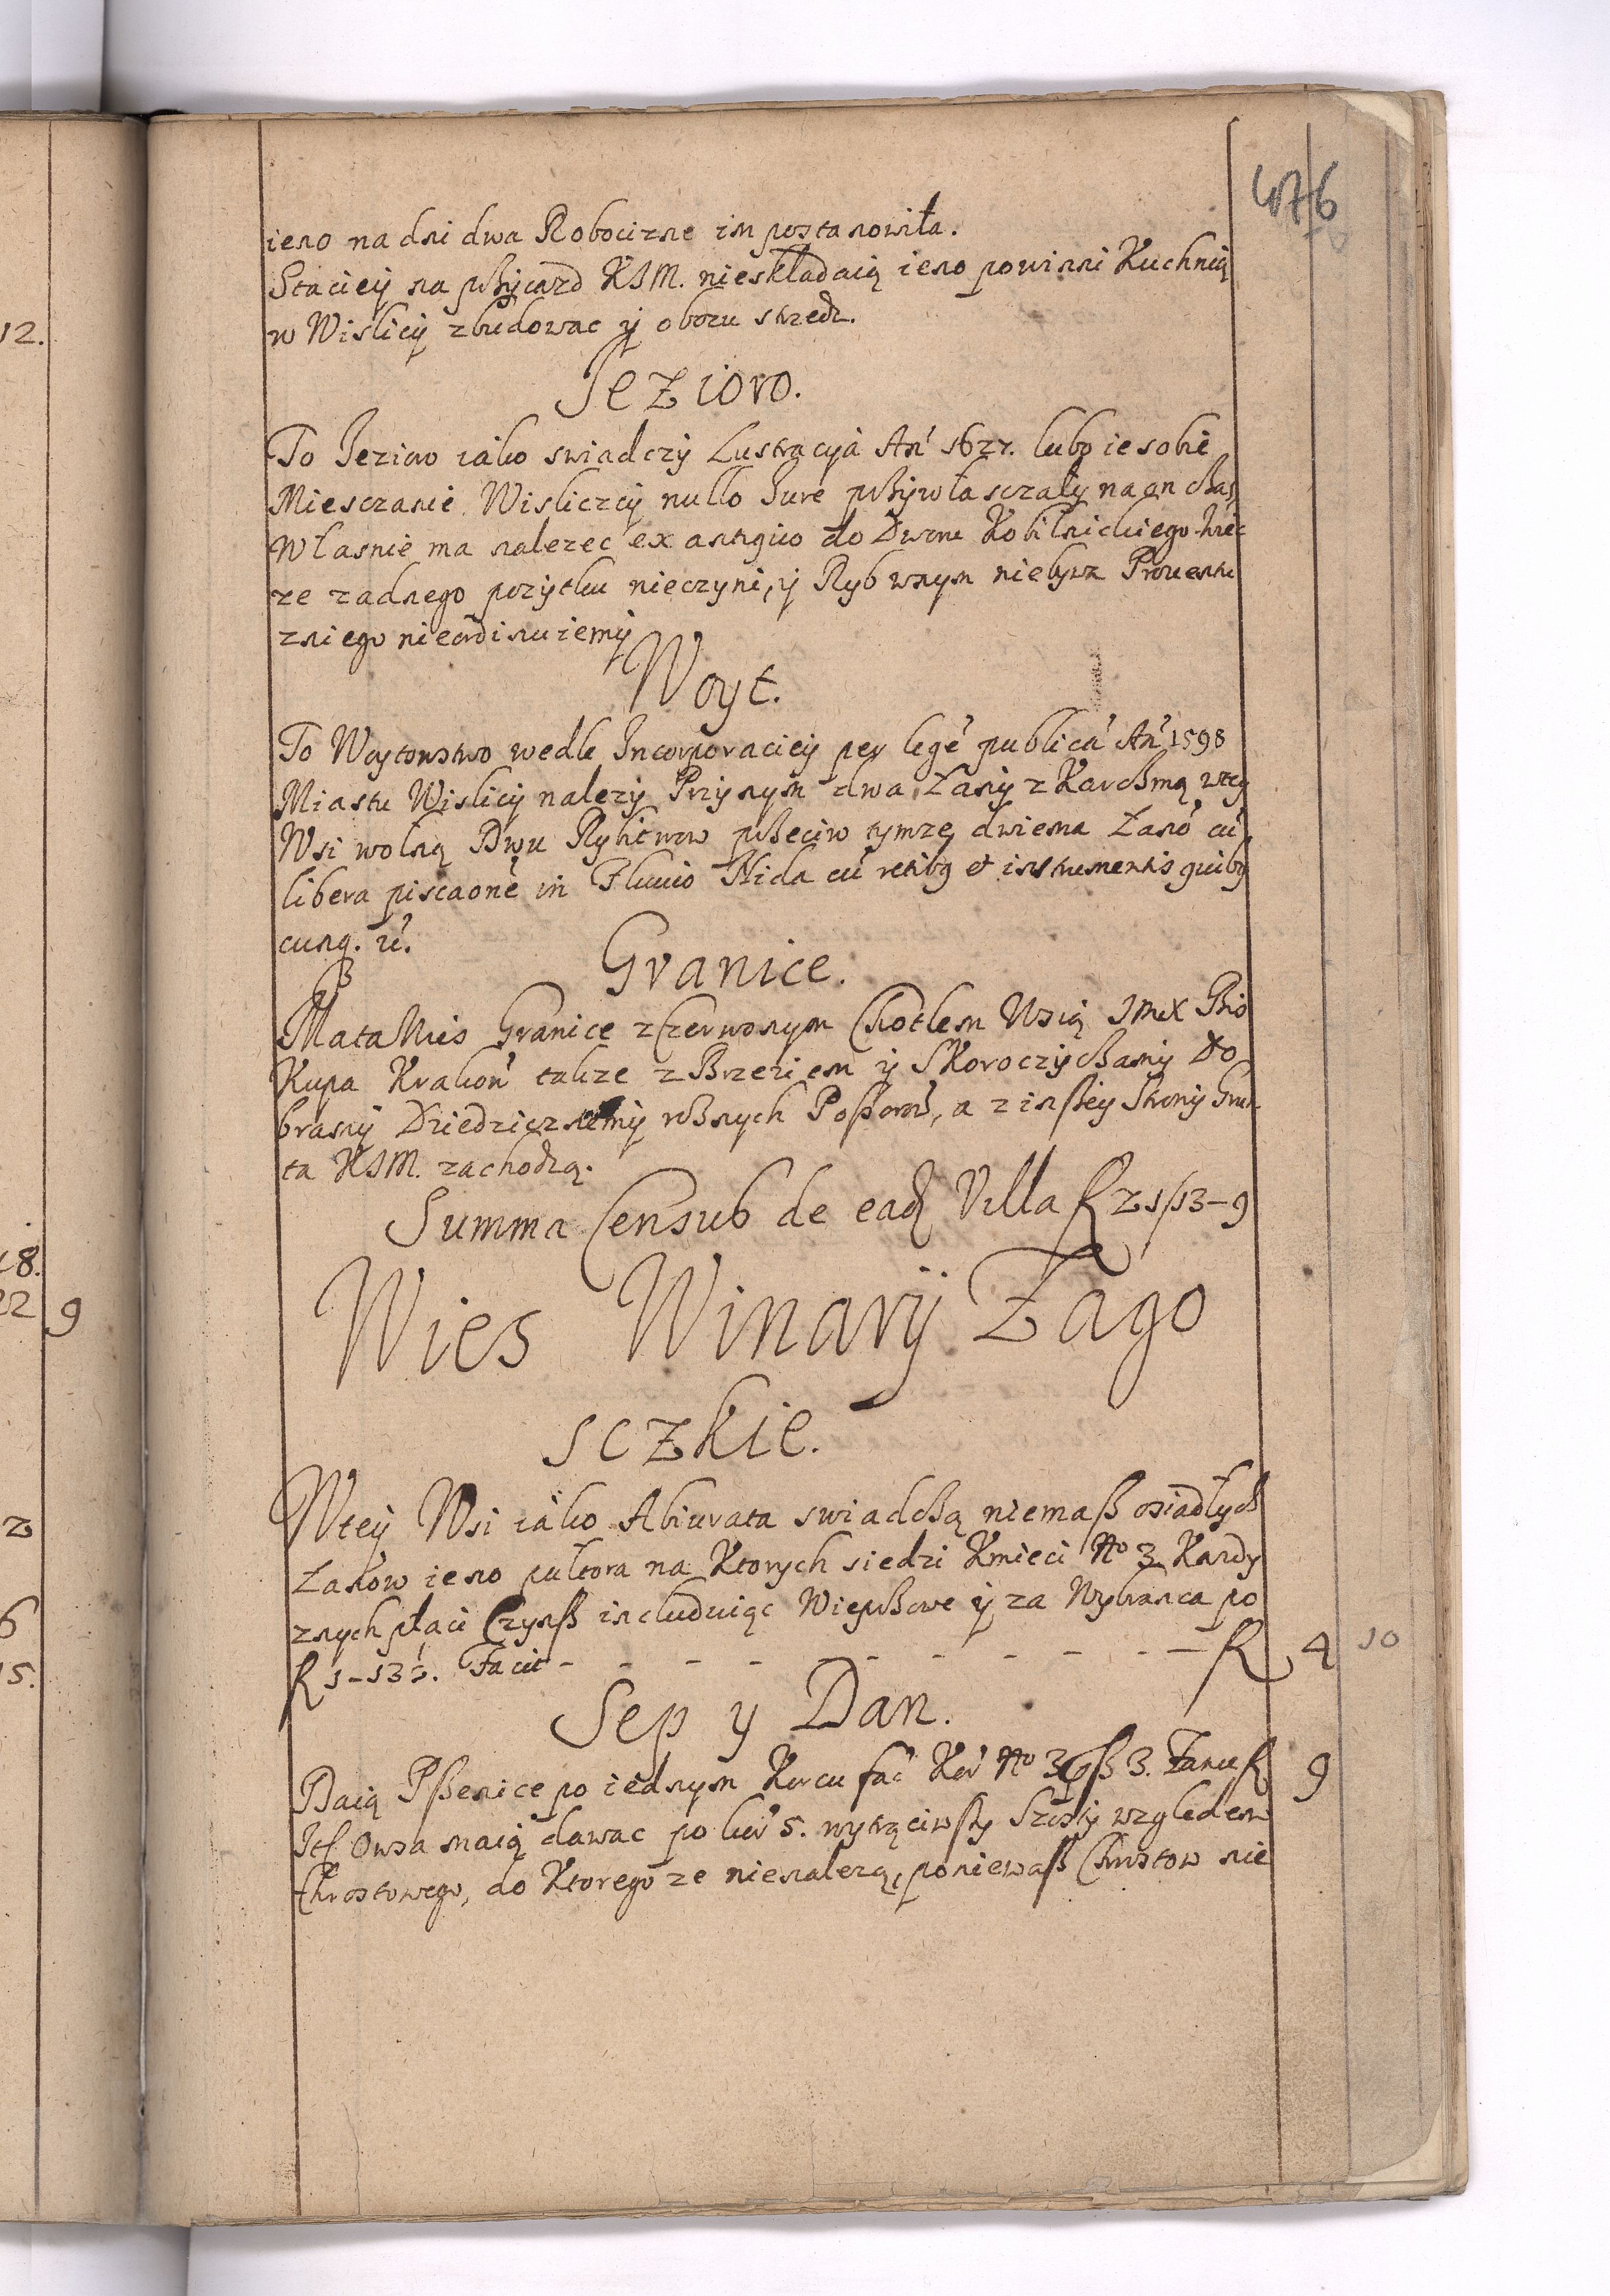 476
ieno na dni dwa Robocizne im postanowiła.
Staciey na pßyiazd KJM. nieskładaią ieno powinni Kuchnią
w Wislicÿ zbudowac ÿ oboru strzedz.
Jezioro.
To Jezioro iako swiadczÿ Lustracya Añ 1627. lubo ie sobie
Miesczanie Wisliczcÿ nullo Jure pßÿwłasczalÿ na on czas
Własnie ma nalezec ex antiquo do Dworu Kobilnickiego
ze zadnego pozÿtku nieczyni, ÿ Ryb wnym niebywa Prouentu
zniego nieordinuiemÿ
Woyt.
To Woytowstwo wedle Incorporaciey per legē publicā Añ 1598
Miastu Wislicÿ nalezÿ Przÿ nym dwa Łanÿ z Karcßmą wteÿ
Wsi wolną Dwu Rybitwow pßeciw tymze dwiema Łanō cū
libera piscaone in Fluuio Nida cū retibq et instrumentis quibq
cunq.
Granice.
Mata Wies Granice z Czerwonym Chotlem Wsią JMX Bis
kupa Krakoñ takze z Brzeziem ÿ Skoroczÿcßami Do
bramÿ Dziedzicznemÿ roznych Possorow, a z inßey Stronÿ Grun
ta KJM. zachodzą.
Summa Censub de ead Villa R 21/13-9
Wies Winarÿ Zago
sczkie.
Wteÿ Wsi iako Abiurata swiadcßą niemaß osiadłych
Łanow ieno pułtora na Ktorych siedzi Kmieci No 3 Kazdy
znych płaci Czynß includuiąc Wiepßowe ÿ za Wybranca po
R 1-13 Facit - - - - - - - - - - R 4 10
Sep y Dan.
Daią Pßenice po iednym Korcu fac Kor No 3 3. Łanu R 9
Owsa maią dawac po kor 5. wytrąciwßy Szostÿ względem
Chrostowego, do Ktorego ze nienalezą, poniewaß Chrostow nie
12.
18.
22 9
2
6
15.